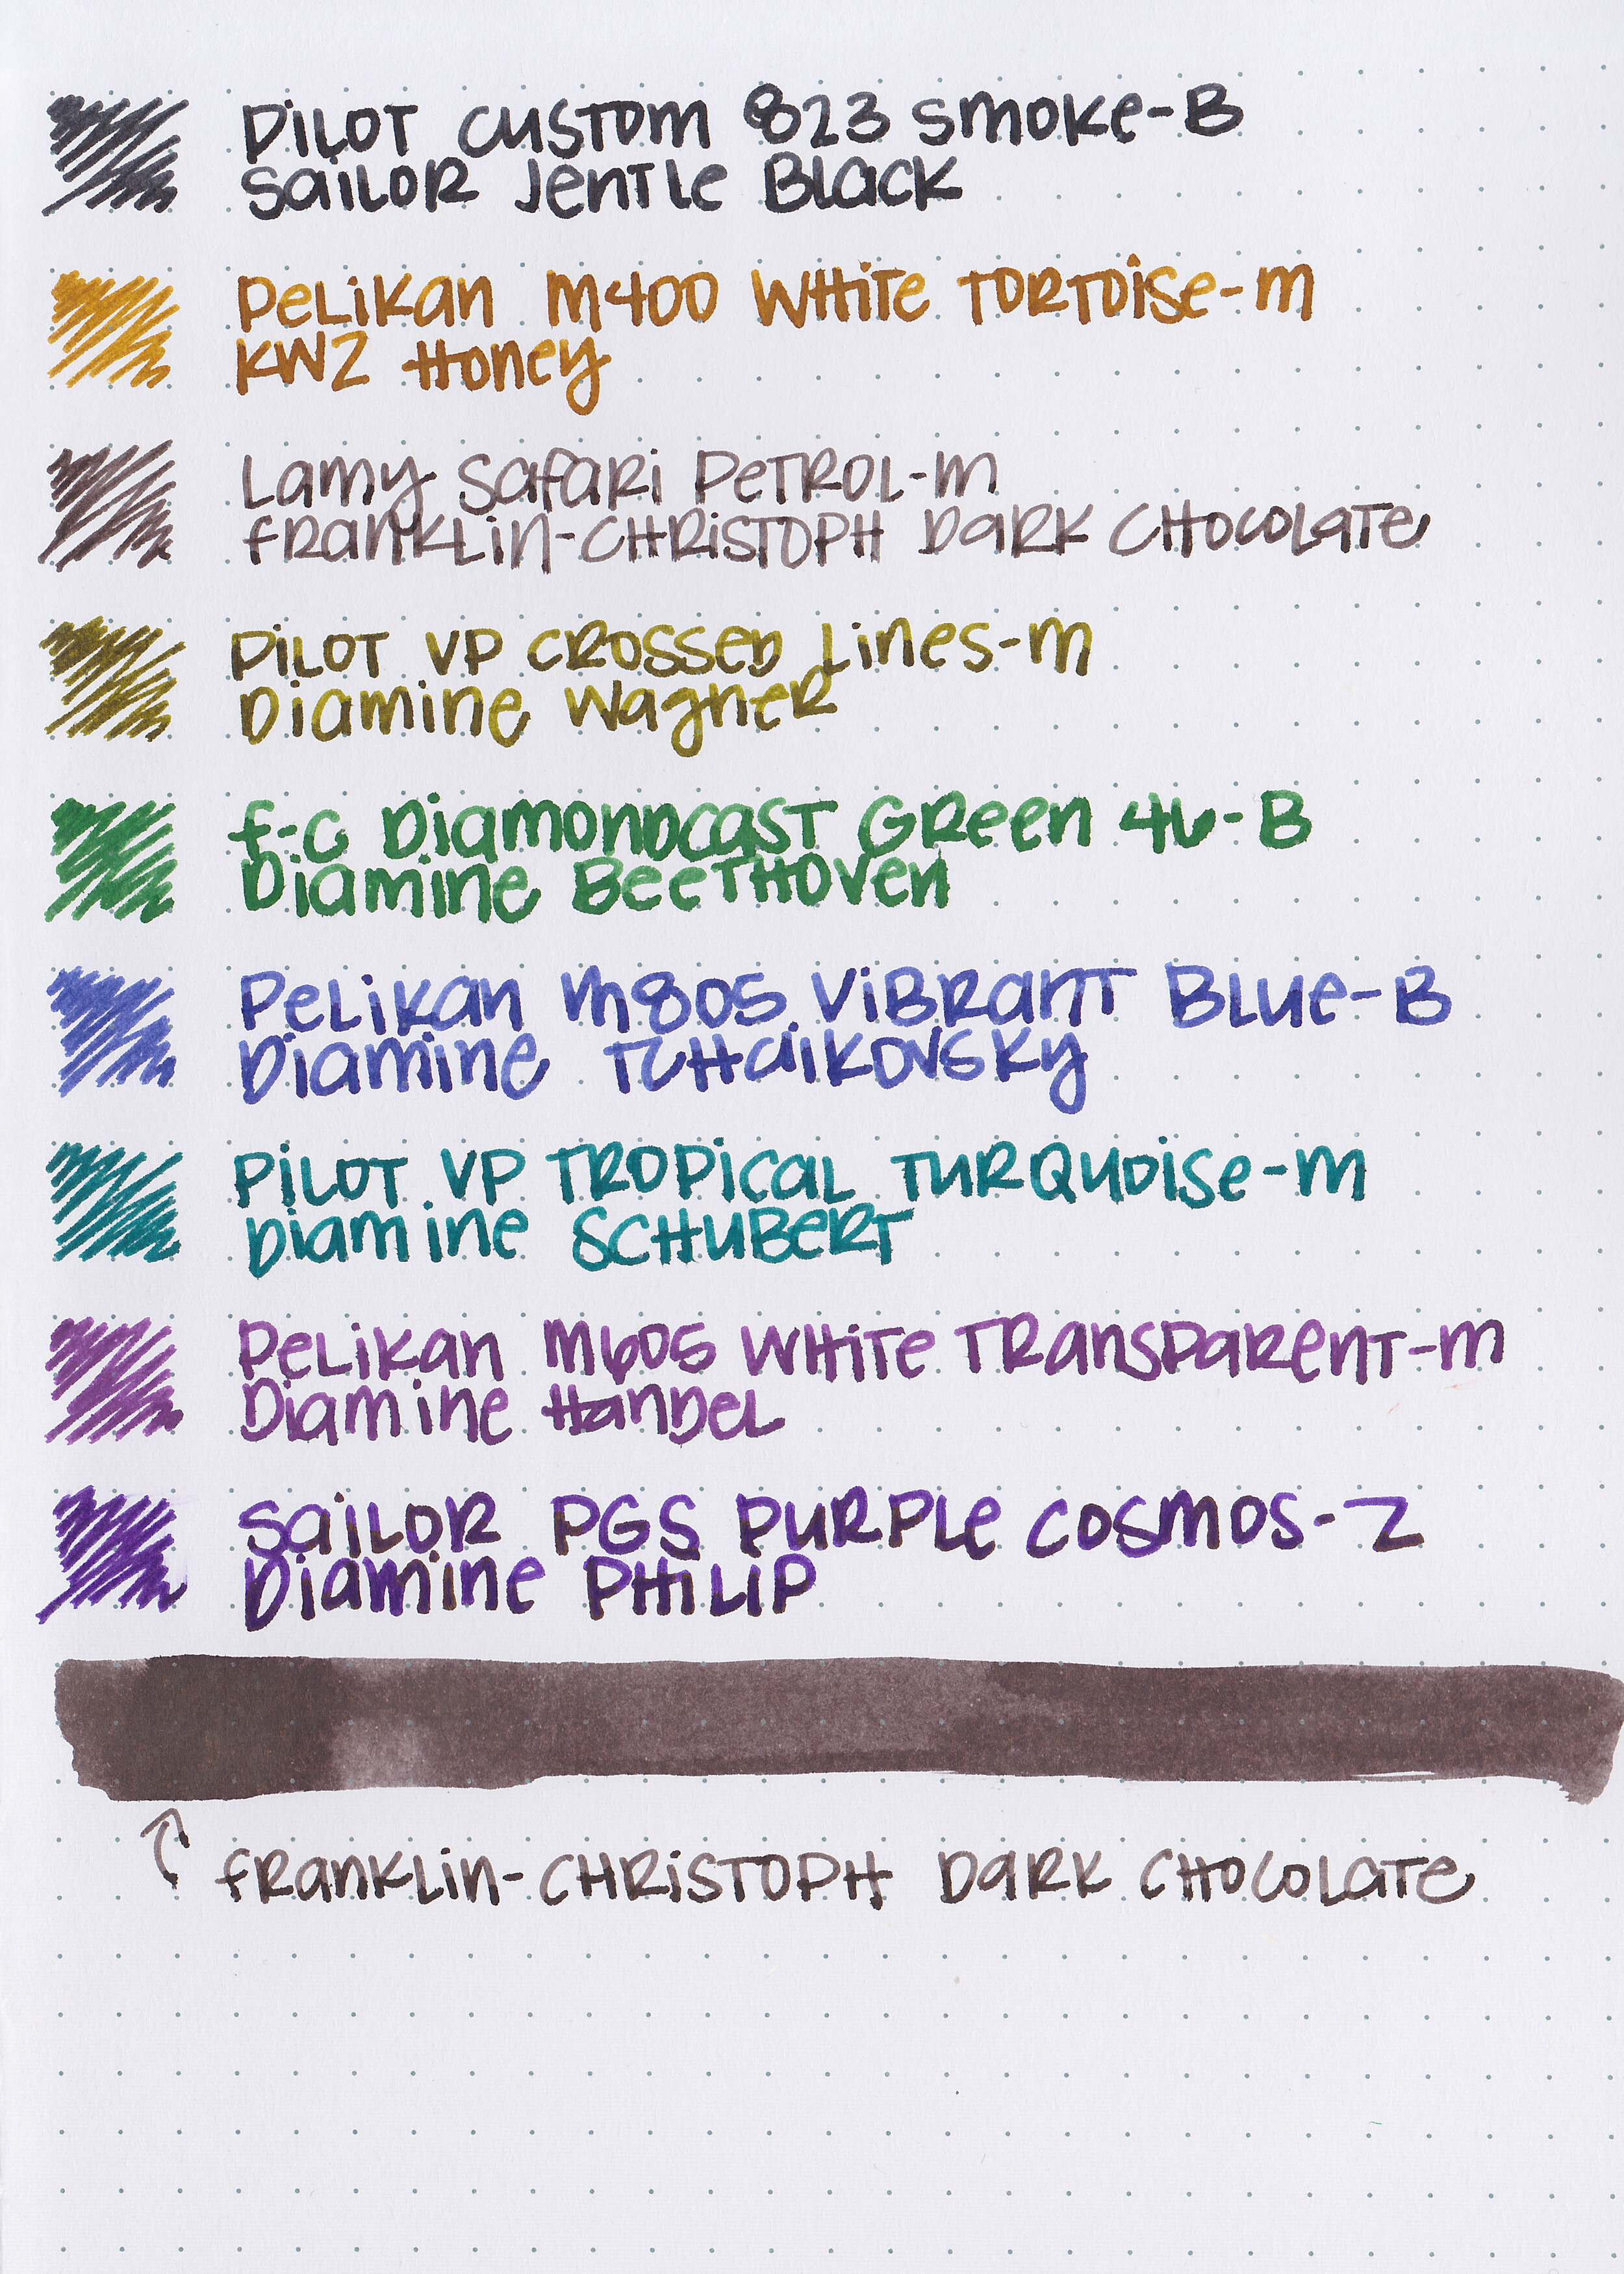 Pilot Custom 823 Smoke-B
Sailor Jentle Black
Pelikan M400 White Tortoise-M
KWZ Honey
Lamy Safari Petrol-M
Franklin-Christoph Dark Chocolate
Pilot VP Crossed Lines-M
Diamine Wagner
F-C Diamondcast Green 46-B
Diamine Beethoven
Pelikan M805 Vibrant Blue-B
Diamine Tchaikovsky
Pilot VP Tropical Turquoise-M
Diamine Schubert
Pelikan M605 White Transparent-M
Diamine Handel
Sailor PGS Purple Cosmos-Z
Diamine Philip
Franklin-Christoph Dark Chocolate